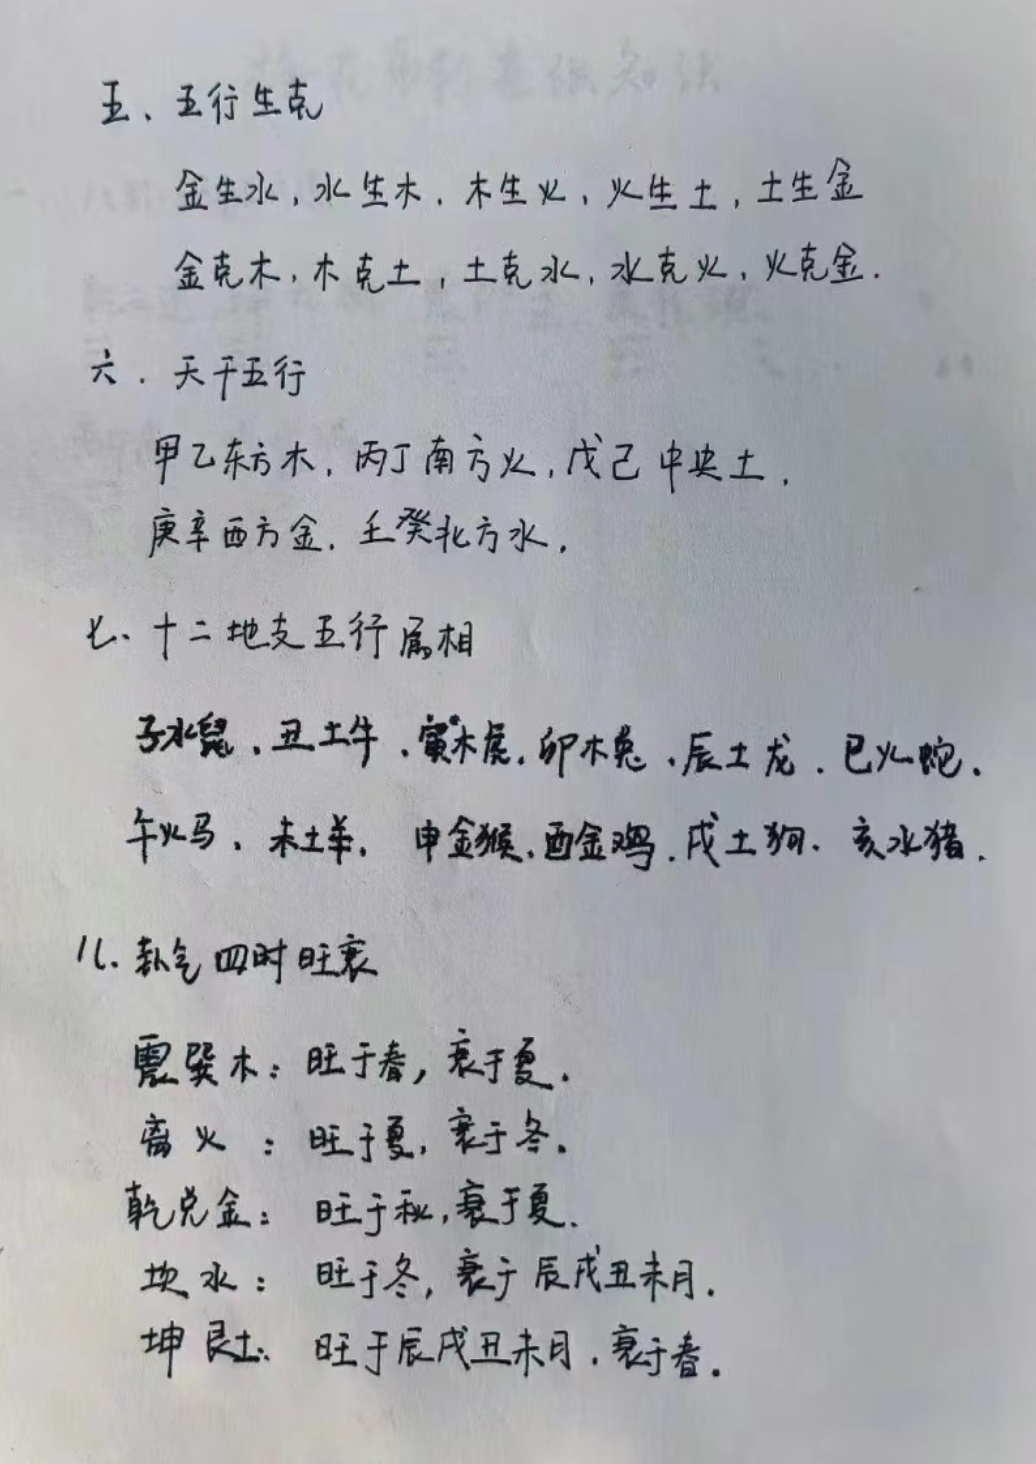 五、五行生克
金生水，水生木．木生火，火生土，土生金
金克木，木克土，土克水，水克火，火克金．
六．天干五行
甲乙东方木，丙丁南方火，戊己中央土．
庚辛西方金．壬癸北方水．
七、十二地支五行属相
子水鼠、丑土牛、寅木虎．卯木兔、辰土龙．巳火蛇．
午火马、未土羊．申金猴、酉金鸡．戌土狗．亥水猪．
八．卦气四时旺衰
震巽木：旺于春，衰于夏．
离火：旺于夏，衰于冬．
乾兑金：旺于秋，衰于夏．
坎水：旺于冬，衰于辰戌丑未月．
坤艮土：旺于辰戌丑未月．衰于春。